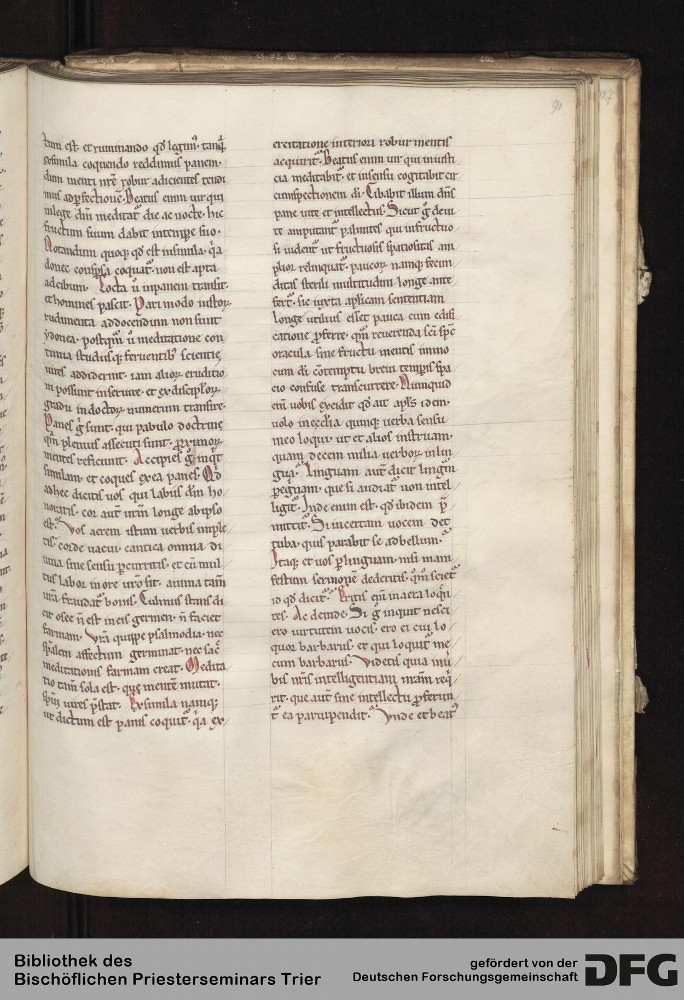 91
tum est· et ruminando qd legim᷒· tanq̄
ex simila coquendo reddimus panem·
dum menti nr̄e robur adicientes tendi
mus ad ꝑfectionē· Beatus enim uir qui
in lege dn̄i meditat᷒ die ac nocte· hic
fructum suum dabit in tempore suo·
Notandum quoq; qd est in simila· q̇a
donec conspsa coquat᷒· non est apta
ad cibum· Cocta u̇ in panem transit·
et homines pascit· Pari modo iustoꝝ
rudimenta ad docendum non sunt
ydonea· postqm̄ u̇ meditatione con
tinua studiisq; feruentib᷒ scientie
uires addiderint· iam alioꝝ eruditio
ni possunt inseruire· et ex discipl̓oꝝ
gradu in doctoꝝ numerum transire·
Panes g̊ sunt· qui pabulo doctrine
qm̄ plenius assecuti sunt· ꝓximoꝝ
mentes reficiunt· Accipies g̊ inq̇t
similam· et coques ex ea panes· Qd
adhec dicitis uos qui labiis dm̄ ho
noratis· cor aut̄ ur̄m longe ab ipso
est· Vos aerem istum uerbis imple
tis· corde uacui· cantica omnia di
uina sine sensu ꝑcurritis· et cū mul
tus labor in ore ur̄o sit· anima tam̄
ur̄a fraudat᷒ bonis· Culmus stans di
cit osee n̄ est in eis germen· n̄ faciet
farinam· Vr̄a quippe psalmodia· nec
sp̄alem affectum germinat· nec sac̄
meditationis farinam creat· Medita
tio tam̄ sola est· que mentē mutat·
sp̄m uires p̄stat· Ex simila namq;
ut dictum est panis coquit᷒· q̇a ex
ercitatione interiori robur mentis
acquirit᷒· Beatus enim uir qui in iusti
cia meditabit᷒· et in sensu cogitabit cir
cumspectionem di· Cibabit illum dn̄s
pane uite et intellectus· Sicut g̊ de ui
te amputant᷒ palmites qui infructuo
si uident᷒ ut fructuosis spatiositas am
plior relinquat᷒· paucoꝝ namq; fecun
ditas sterili multitudini longe ante
fert᷒· sic iuxta ap̄licam sententiam
longe utilius esset pauca cum edifi
catione ꝓferre· qm̄ reuerenda sc̄i sp̄c
oracula sine fructu mentis immo
cum di cōtemptu breui temꝑis spa
cio confuse transcurrere· Nunquid
eni̅ uobis excidit qd ait apl̄s idem·
uolo in ęcclia quinq; uerba sensu
meo loqui· ut et alios instruam·
quam decem milia uerboꝝ in lin
gua· Linguam aut̄ dicit lingm̄
ꝑegnam· que si audiat᷒ non intel
ligit᷒· Inde enim est· qd ibidem p̄
mittit᷒· Si incertam uocem det
tuba· quis parabit se ad bellum·
Itaq; et uos ꝑ linguam· nisi mani
festum sermonē dederitis· qm̄ sciet᷒
id qd dicit᷒· Eritis eni̅ in aera loq̇n
tes· Ac deinde· Si g̊ inquit nesci
ero uirtutem uocis· ero ei cui lo
quor barbarus· et qui loquit᷒ mi
chi barbarus· Videtis quia in u
bis nr̄is intelligentiam mam̄ req̇
rit· que aut̄ sine intellectu ꝓferun
t᷒ ea paruipendit· Vnde et beat᷒
Bibliothek des
Bischöflichen Priesterseminars Trier
gefördert von der
Deutschen Forschungsgemeinschaft
DFG